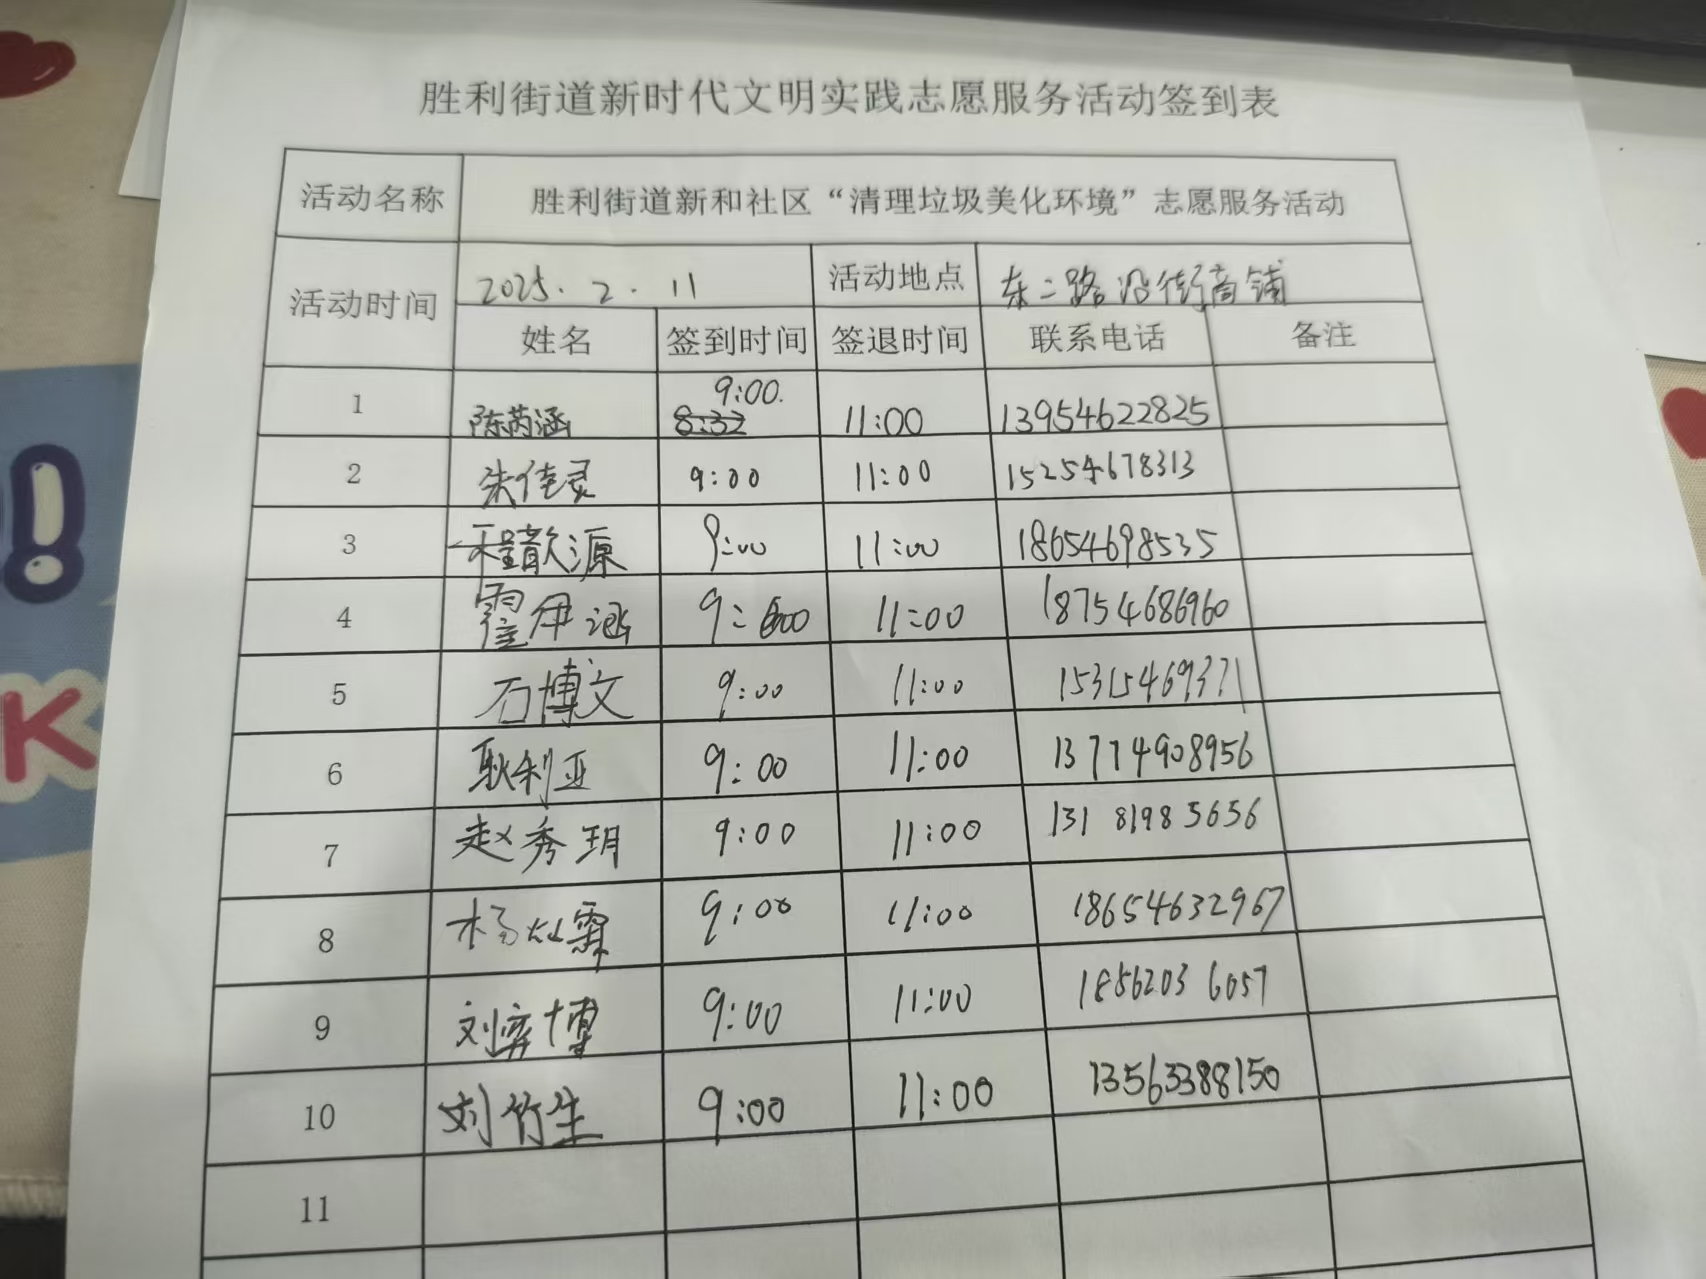 胜利街道新时代文明实践志愿服务活动签到表
活动名称 胜利街道新和社区“清理垃圾美化环境”志愿服务活动
活动时间 2025.2.11 活动地点 东二路沿街商铺
姓名 签到时间 签退时间 联系电话 备注
1 陈芮涵 8:32 9:00. 11:00 13954622825
2 朱佳灵 9:00 11:00 15254678313
3 程歆源 9:00 11:00 18654698535
4 霍伊涵 9:00 11:00 18754686960
5 石博文 9:00 11:00 15315469371
6 耿利亚 9:00 11:00 13714908956
7 赵秀玥 9:00 11:00 13181985656
8 杨灿霖 9:00 11:00 18654632967
9 刘弈博 9:00 11:00 18562036057
10 刘竹生 9:00 11:00 13563388150
11
K
!